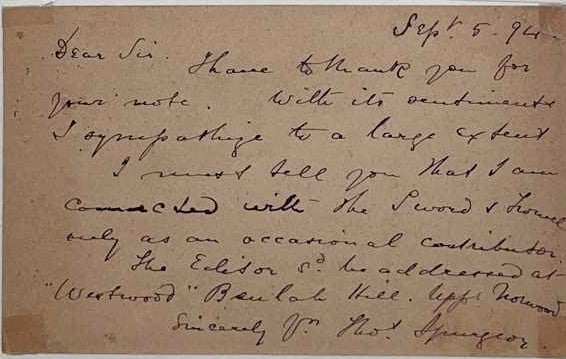 Sept. 5. 94.
Dear Sir. I have to thank you for
your note. With its sentiments
I sympathize to a large extent.
I must tell you that I am
connected with the Sword & Trowel
only as an occasional contributor.
The Editor sd. be addressed at
"Westwood" Beulah Hill. Uppr Norwood
Sincerely Yrs Thos. Spurgeon.